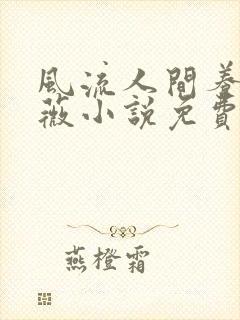 風流人間春
薇小說免費
燕橙霜